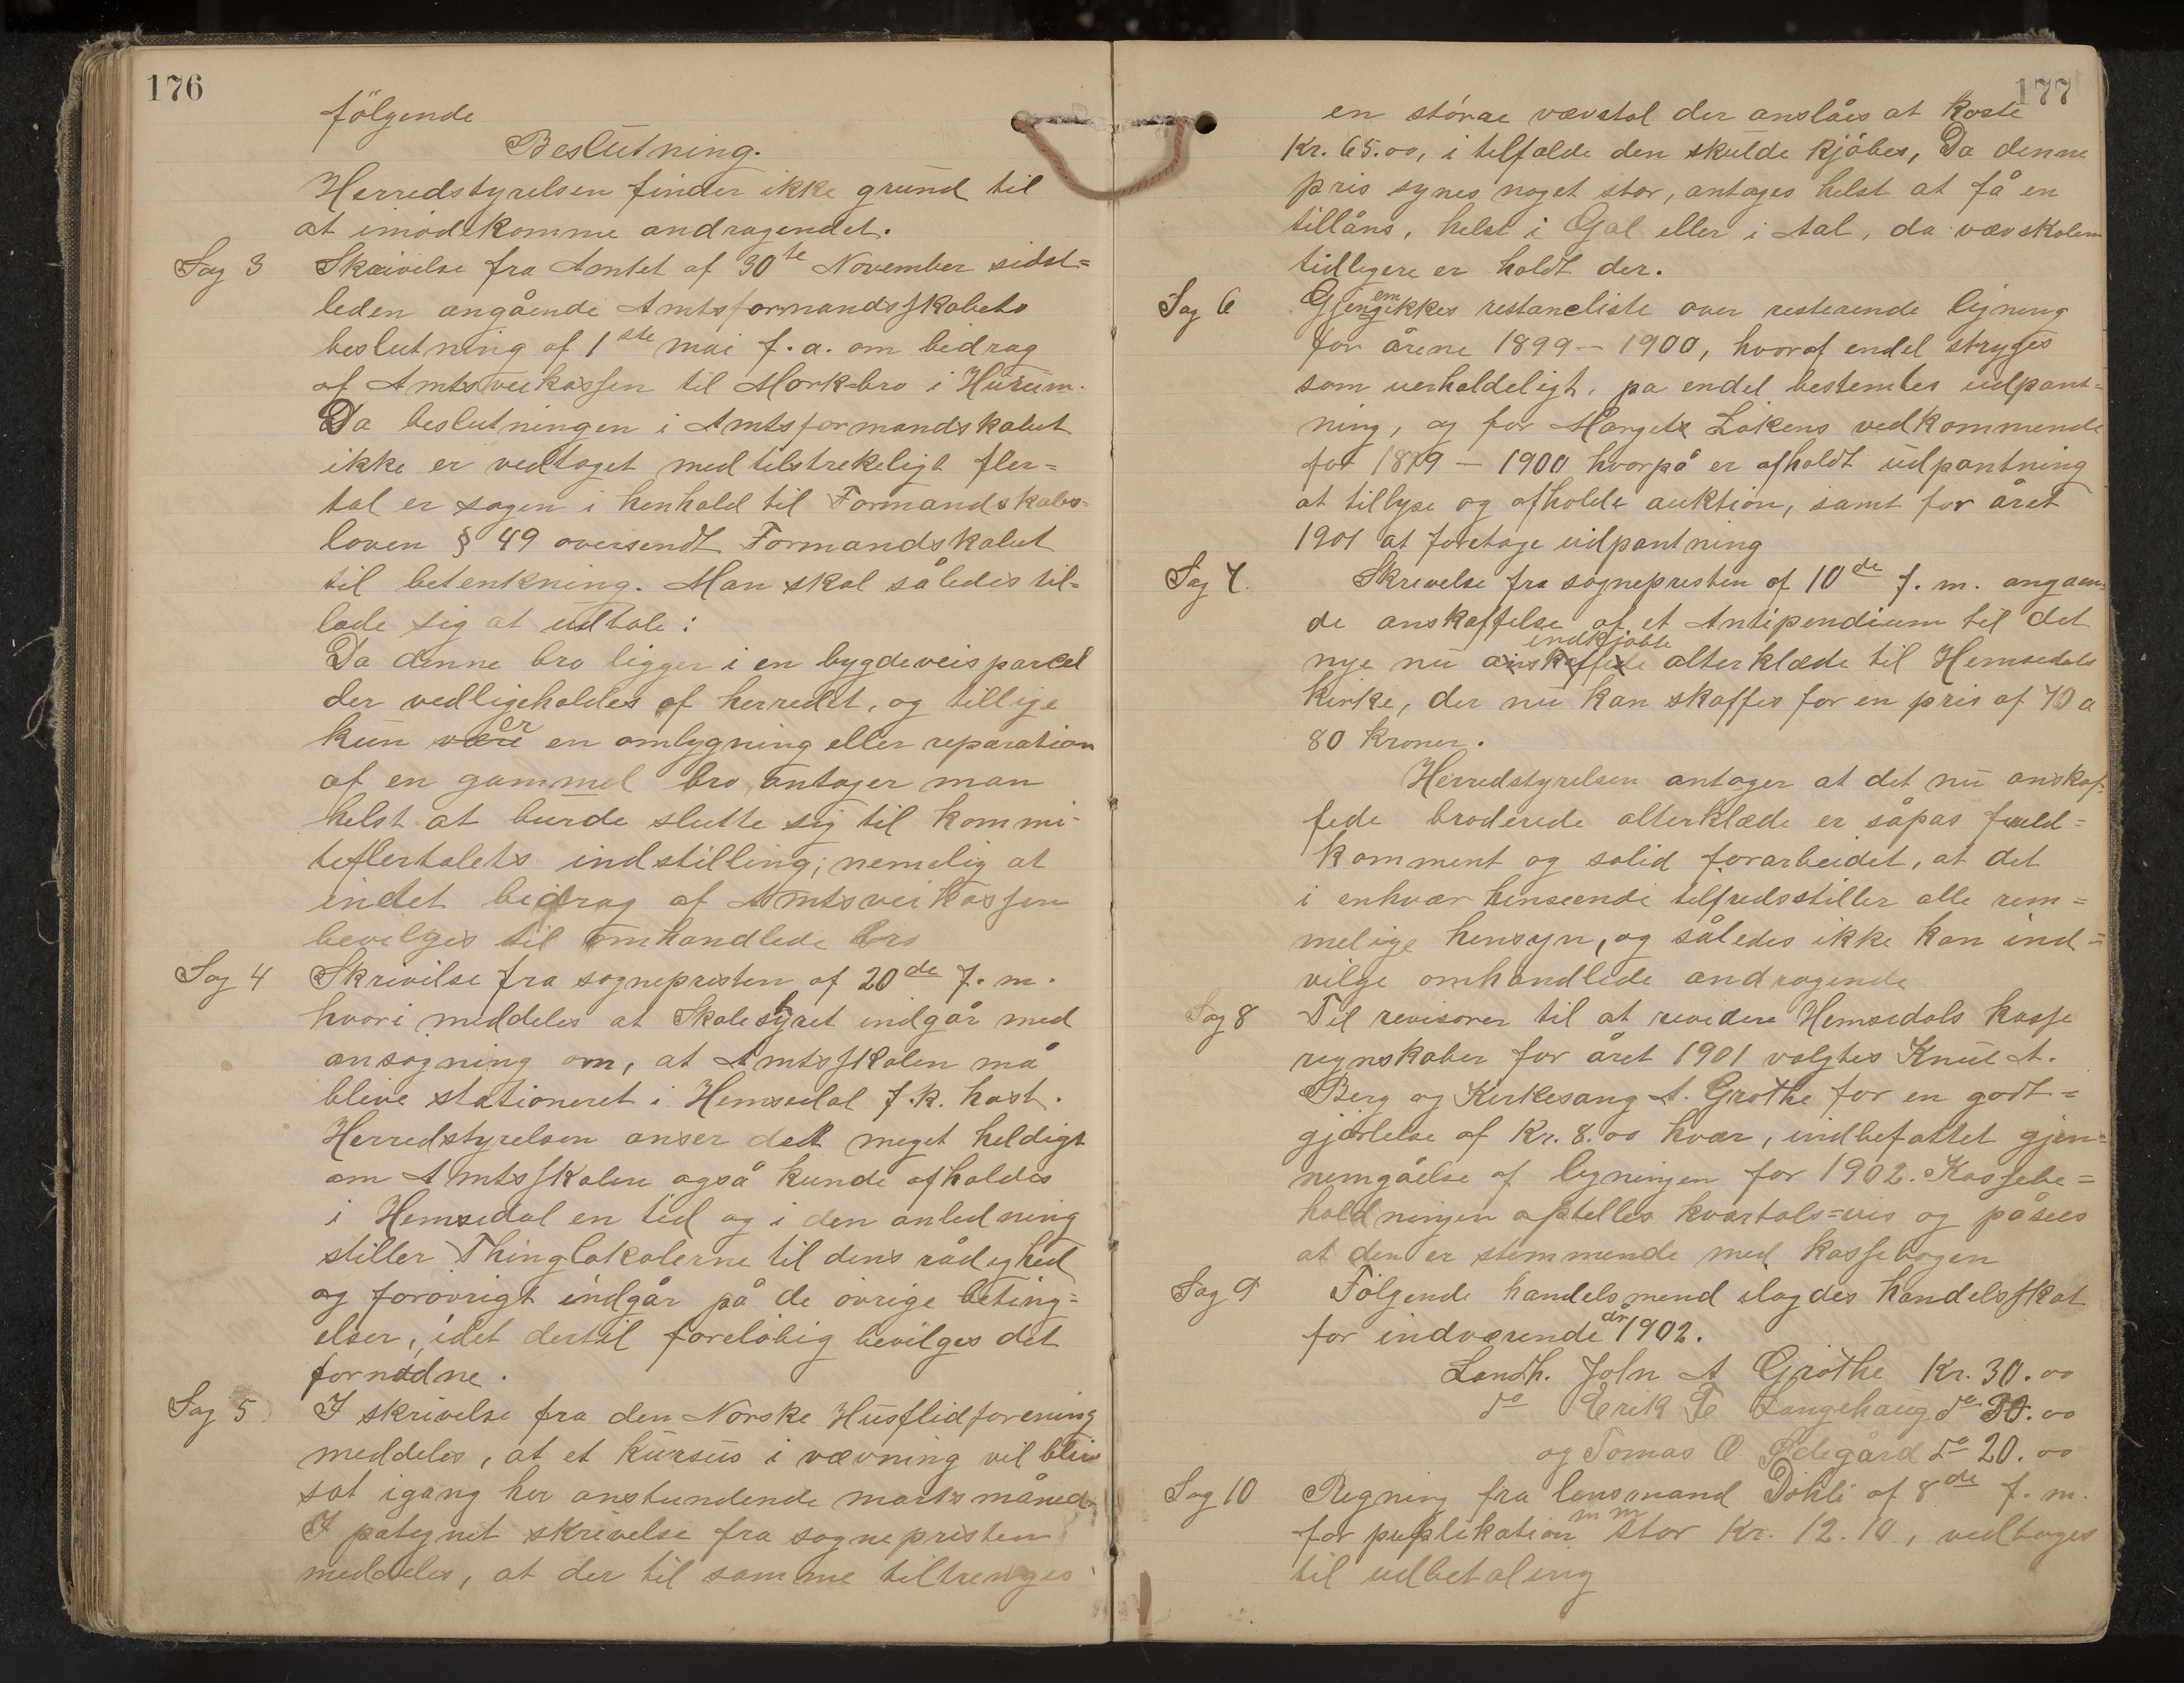 176
følgende
Beslutning.
Herredstyrelsen finder ikke grund til
at imødekomme andragendet.
Sag 3 Skrivelse fra Amtet af 30te November sidst=
leden angående Amtsformandsskabets
beslutning af 1ste mai f. a. om bidrag
af Amtsveikassen til Mork-bro i Hurum.
Da beslutningen i Amtsformandskabet
ikke er vedtaget med tilstrekeligt fler=
tal er sagen i henhold til Formandskabs=
loven § 49 oversendt Formandskabet
til betenkning. Man skal således til=
lade sig at udtale:
Da denne bro ligger i en bygdeveisparcel
der vedligeholdes af herredet, og tillige
kun er en omlygning eller reparation
af en gammel bro, antager man
helst at burde slutte sig til kommi-
teflertalets indstilling; nemelig at
intet bidrag af Amtsveikassen
bevilges til omhandlede bro
Sag 4 Skrivilse fra sognepresten af 20de f. m.
hvori meddeles at Skolestyret indgår med
ansøgning om, at Amtsskolen må
blive stationeret i Hemsedal f. k. høst.
Herredstyrelsen anser det meget heldigt
om Amtsskolen også kunde afholdes
i Hemsedal en tid og i den anledning
stiller Thinglokalerne til dens rådighed
og forøvrigt indgår på de øvrige beting=
elser, idet dertil foreløbig bevilges det
fornødne.
Sag 5 I skrivelse fra den Norske Husflidforening
meddeles, at et kursus i vævning vil blive
sat igang her anstundende marts måned.
I påtegnet skrivelse fra sognepresten
meddeles, at der til samme tiltrenges
177
en større vævstol der anslåes at koste
Kr. 65.00, i tilfælde den skulde kjøbes, Da denne
pris synes noget stor, antages helst at få en
tillåns, helst i Gol eller i Aal, da vævskolen
tidligere er holdt der.
Sag 6 Gjennemgikkes restanceliste over resterende ligning
for årene 1899 - 1900, hvoraf endel stryges
som uerholdeligt, pa endel bestemtes udpant=
ning, og for Margete Løkens vedkommende
for 1899 - 1900 hvorpå er afholdt udpantning
at tillyse og afholde auktion, samt for året
1901 at foretage udpantning
Sag 7. Skrivelse fra sognepresten af 10de f. m. angaaen-
de anskaffelse af et Antipendium til det
nye nu indkjøbte alterklæde til Hemsedals
kirke, der nu kan skaffes for en pris af 70 a
80 kroner.
Herredstyrelsen antager at det nu anskaf-
fede broderede alterklæde er såpas fuld=
komment og solid forarbeidet, at det
i enhvær henseende tilfredsstiller alle rim=
melige hensyn, og således ikke kan ind=
vilge omhandlede andragende
Sag 8 Til revisorer til at revidere Hemsedals kasse
regnskaber for året 1901 valgtes Knut A.
Berg og Kirkesang. A. Grøthe for en godt=
gjørlelse af Kr. 8.00 hvær, indbefattet gjen=
nemgåelse af ligningen for 1902. Kassebe=
holdningen optelles kvartals=vis og påsees
at den er stemmende med kassebogen
Sag 9 Følgende handelsmend ilagdes handelsskat
for indværende år 1902.
Landh. John A Grøthe Kr. 30.00
do Erik E Langehaug do 30.00
og Tomas O Ødegård do 20.00
Sag 10 Regning fra lensmand Døhli af 8de f. m.
for puplikation m m stor Kr. 12.10, vedtages
til udbetaling